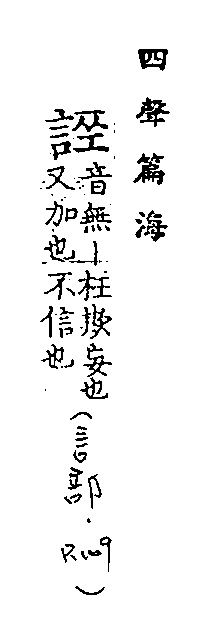 四聲篇海
誈
音無丨枉撗妄也
又加也不信也
(言部.
)